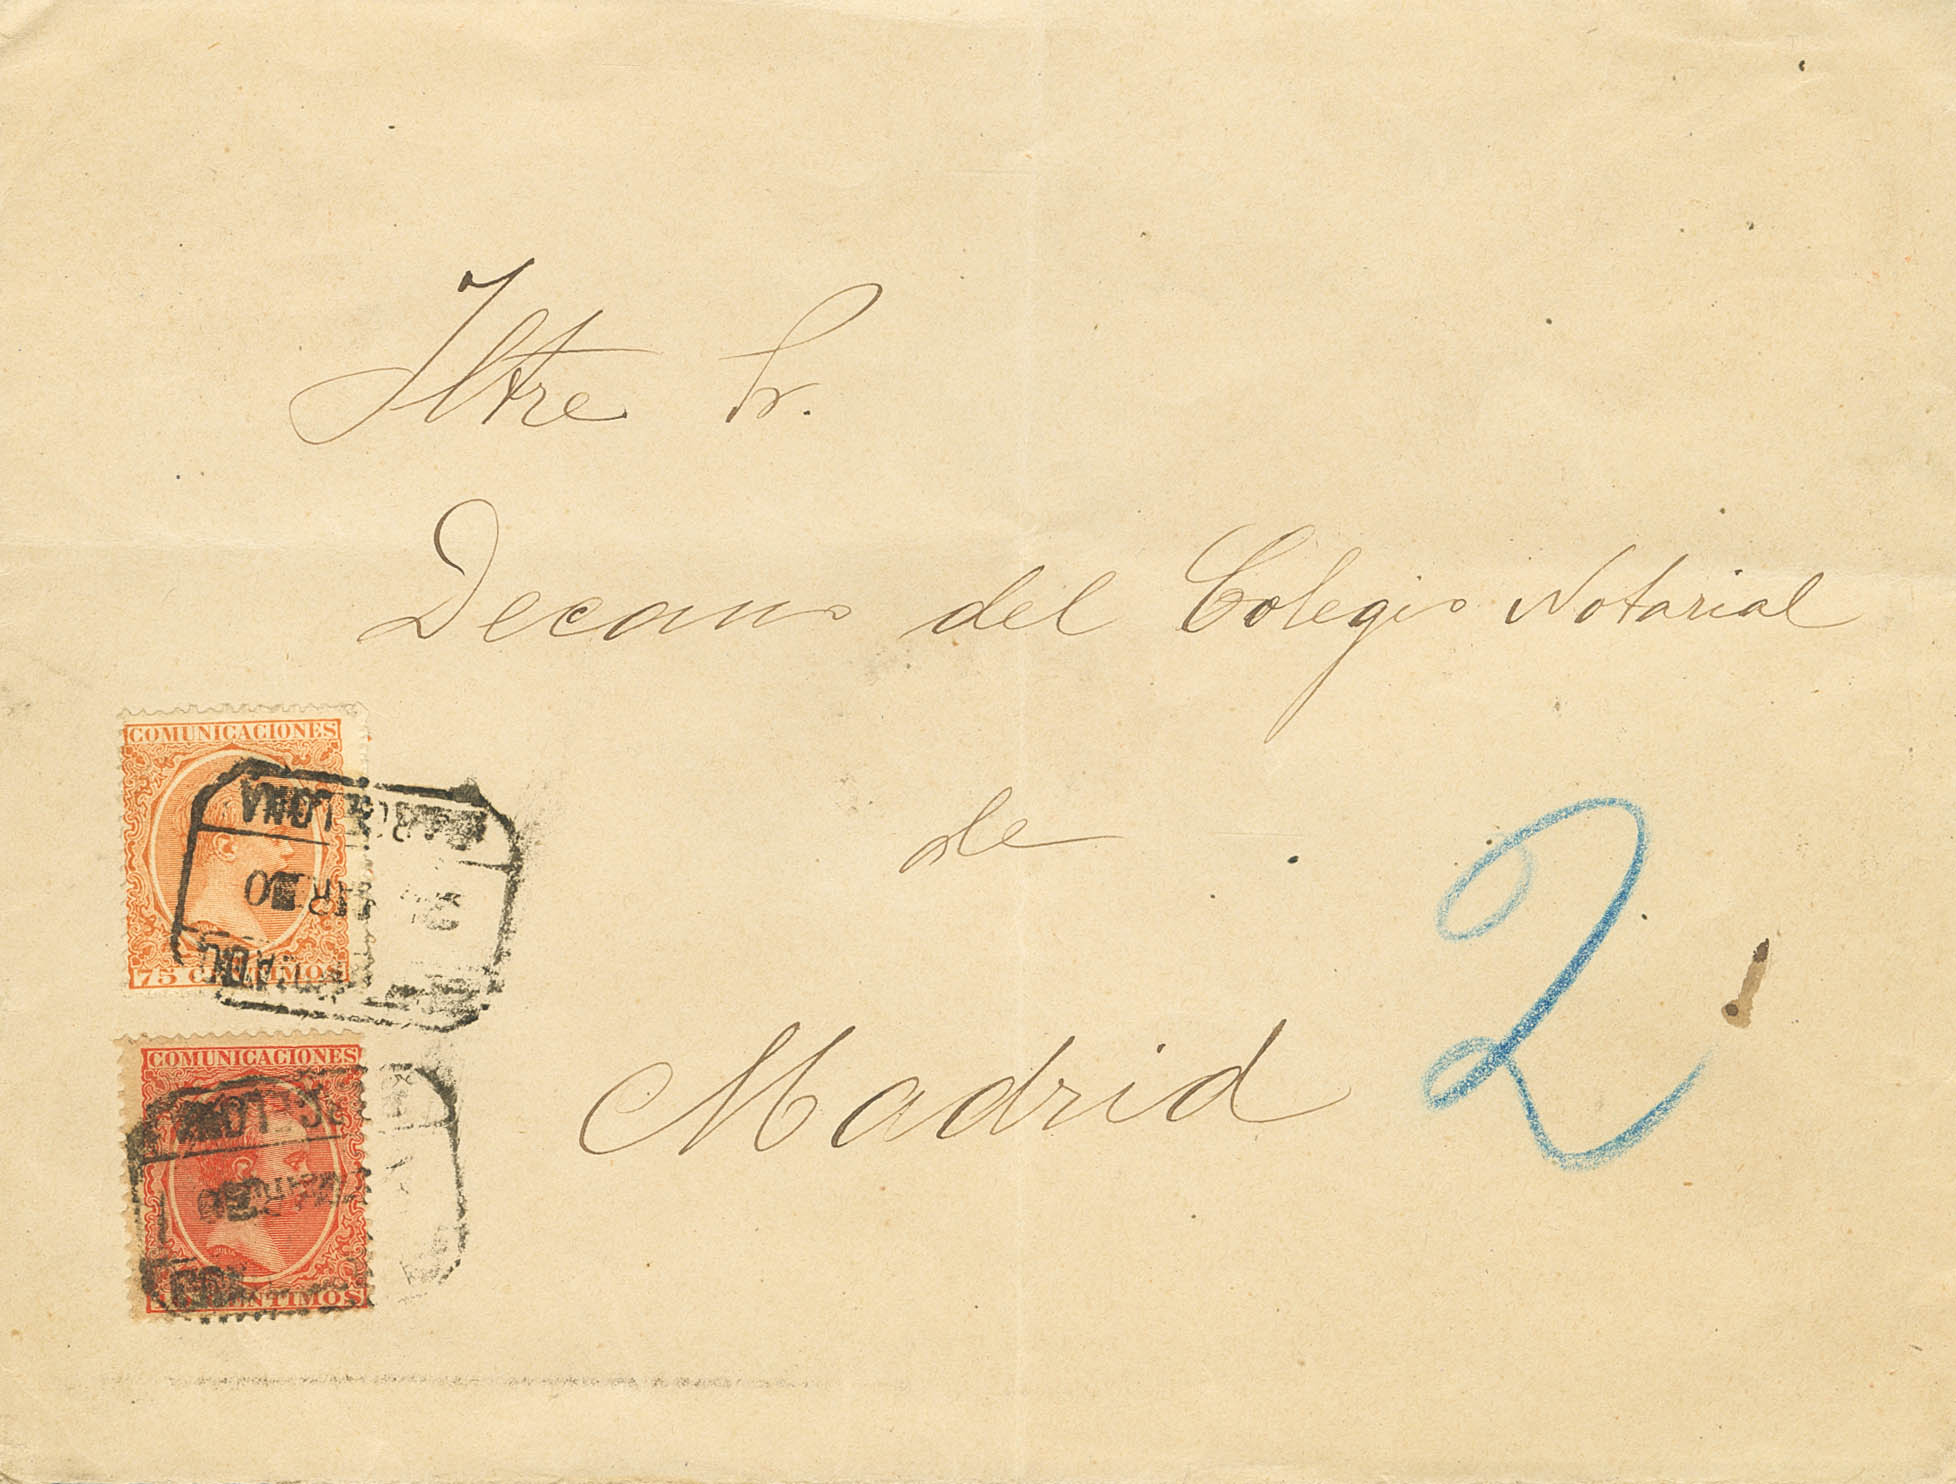 Iltre Sr.
Decano del Colegio Notarial
de
Madrid
2
COMUNICACIONES
75 CENTIMOS
BARCELONA
COMUNICACIONES
CENTIMOS